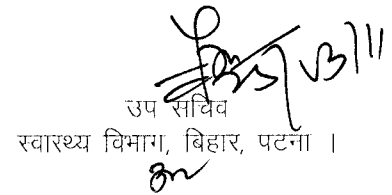 उप सचिव
स्वास्थ्य विभाग, बिहार, पटना ।